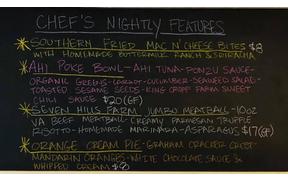 CHEF'S NIGHTLY FEATURES
SOUTHERN FRIED MAC N CHEESE BITES $8
WITH HOMEMADE BUTTERMILK RANCH & SRIRACHA
AHI POKE BOWL - AHI TUNA - PONZU SAUCE -
ORGANIC GREENS - CARROT - CUCUMBER - SEAWEED SALAD -
TOASTED SESAME SEEDS - KING CROPP FARM SWEET
CHILI SAUCE $20 (GF)
SEVEN HILLS FARM JUMBO MEATBALL - 10oz
VA BEEF MEATBALL - CREAMY PARMESAN TRUFFLE
RISOTTO - HOMEMADE MARINARA - ASPARAGUS $17 (GF)
ORANGE CREAM PIE - GRAHAM CRACKER CRUST -
MANDARIN ORANGES - WHITE CHOCOLATE SAUCE &
WHIPPED CREAM $8